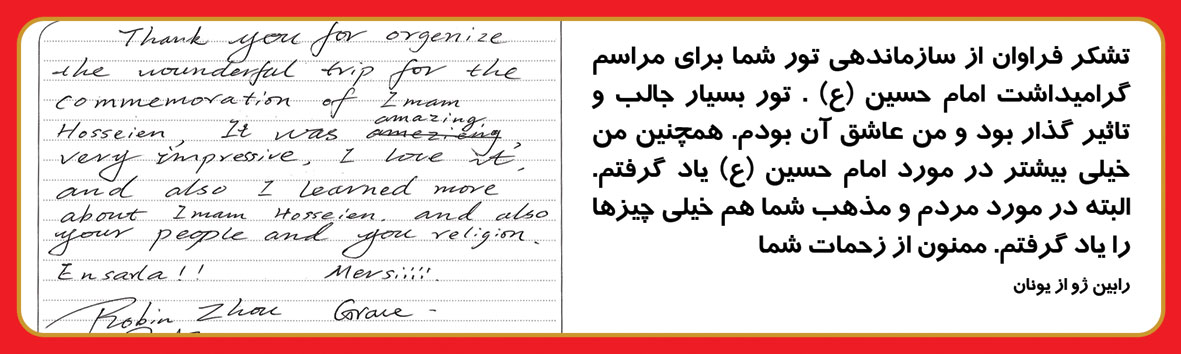 Thank you for orgenize
the wounderful trip for the
commemoration of Imam
amazing,
Hosseien, It was amezieng,
very impressive, I love it,
and also I learned more
about Imam Hosseien. and also
your people and you religion.
Ensarla!! Mersiiii!
Robin Zhou Grace -
تشکر فراوان از سازماندهی تور شما برای مراسم
گرامیداشت امام حسین (ع) . تور بسیار جالب و
تاثیر گذار بود و من عاشق آن بودم. همچنین من
خیلی بیشتر در مورد امام حسین (ع) یاد گرفتم.
البته در مورد مردم و مذهب شما هم خیلی چیزها
را یاد گرفتم. ممنون از زحمات شما
رابین ژو از یونان